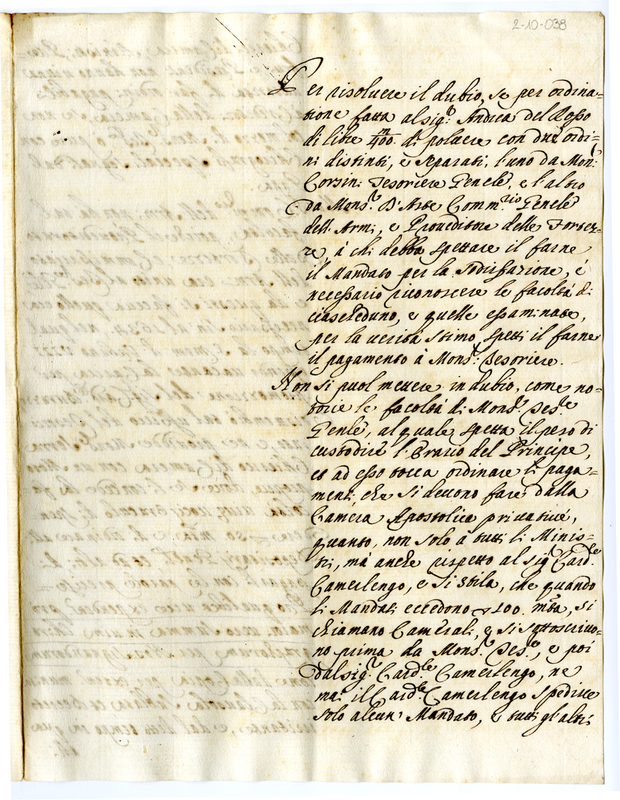 2-10-038
Per risoluere il dubio, se per ordina=
tione fatta al sig.r Andrea del Rosso
di libre 400. di poluere con due ordi=
ni distinti, e separati, l'uno da Mon:
Corsini Tesoriere Gen.le, e l'altro
da Mons.r D'Aste Comm.rio Gen.le
dell'Armi, e Proueditore delle Fortez=
ze à chi debba spettare il farne
il Mandato per la sodisfazione, é
necessario riconoscere le facoltà di
ciascheduno, e quelle essaminate,
per la verità stimo spetti il farne
il pagamento à Mons.r Tesoriere.
Non si puol mettere in dubio, come no=
torie le facoltà di Mons.r Tes.re
Genle, al quale spetta il peso di
custodire l'Erario del Principe,
et ad esso tocca ordinare li paga=
menti che si deuono fare dalla
Camera Apostolica priuatiué,
quanto, non solo à tutti li Minis=
tri, mà anche rispetto al sig.r Card.le
Camerlengo, e si stila, che quando
li Mandati eccedono 100. mta, si
chiamano Camerali, e si sottoscriuo=
no prima da Mons.r Tes.re, e poi
dal sig.r Card.le Camerlengo, ne
mai il Card.le Camerlengo spedisce
solo alcun Mandato, e tutti gl'altri